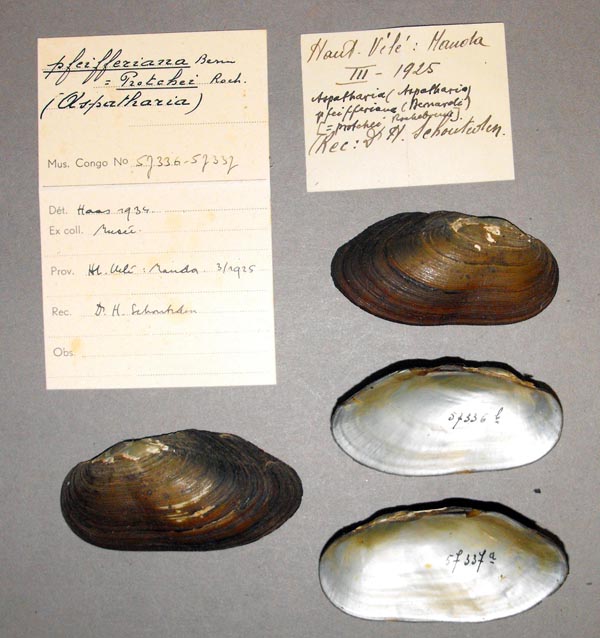 pfeifferiana Bern
= Protchei Roch.
(Aspatharia)
Mus. Congo No 57336-57337
Dét. Haas 1934
Ex coll. Musée.
Prov. Ht. Uelé: Manda. 3/1925
Rec. Dr. H. Schouteden
Obs.
Haut-Uélé: Manda
III - 1925
Aspatharia (Aspatharia)
pfeifferiana (Bernardi)
(= protchei Rochebrune).
(Rec: Dr H. Schouteden.
57336 b
57337 a